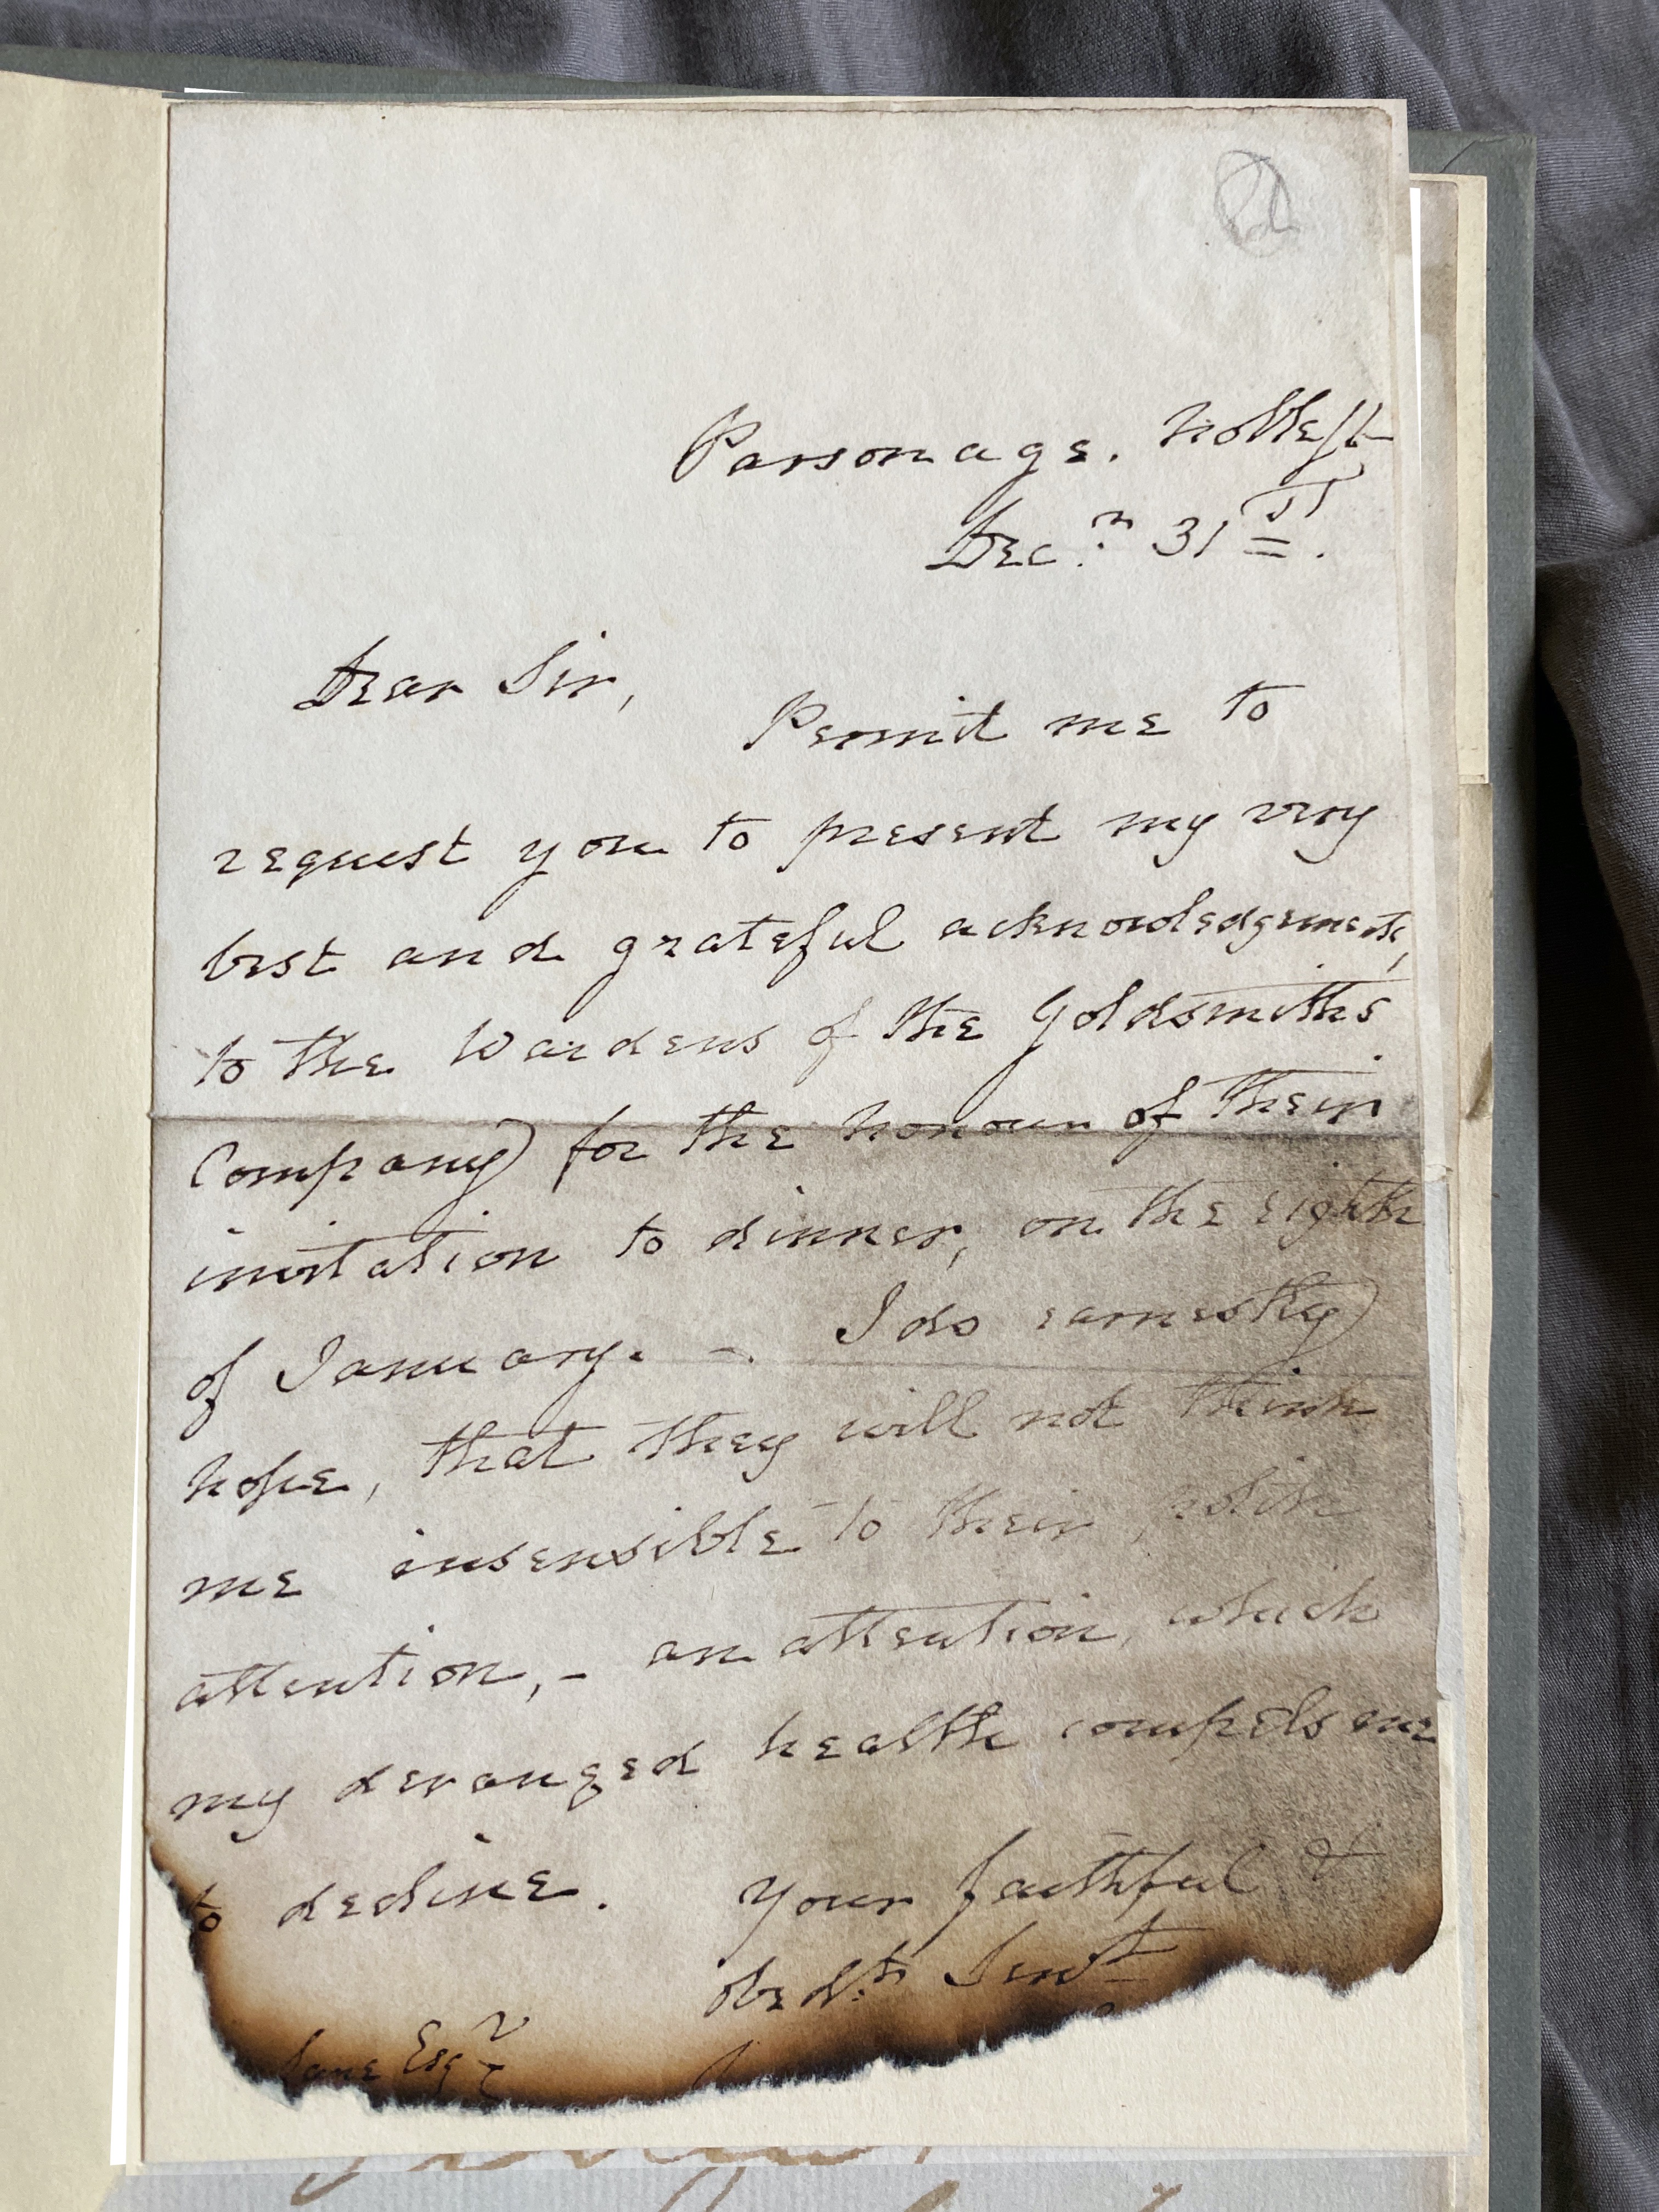 Parsonage.
Decr 31st.
Dear Sir,
Permit me to
request you to present my very
best and grateful acknowledgements,
to the Wardens of the Goldsmiths
Company) for the honour of their
invitation to dinner, on the eighth
of January. -. I do earnestly
hope, that they will not think
me insensible to their polite
attention, - an attention, which
my deranged health compels me
to decline. Your faithful &
obedt Servt
Lane Esqr